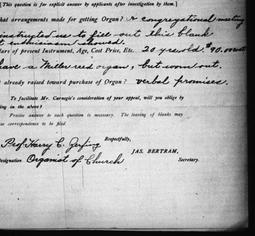 [This question is for explicit answer by applicants after investigation by them.]
what arrangements made for getting Organ? A congregational meeting
instructed us to fill out this blank
enthusiasm showed.
of present instrument, Age, Cost Price, Etc. 20 years old $90.
have a reed organ, but worn out.
already raised toward purchase of Organ? verbal promises.
To facilitate Mr. Carnegie's consideration of your appeal, will you oblige by
in the above?
Precise answer to each question is necessary. The leaving of blanks may
correspondence to be filed.
Respectfully,
Prof Harry C.
JAS. BERTRAM,
Designation Organist of Church
Secretary.